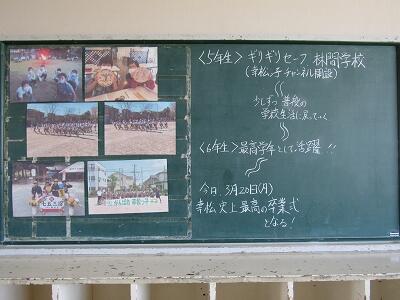 <5年生> ギリギリセーフ 林間学校
(幸松っ子チャンネル開設)
少しずつ普段の
学校生活に戻っていく
<6年生> 最高学年として活躍!!
今日、3月20日(月)
幸松史上最高の卒業式
となる!
七五三